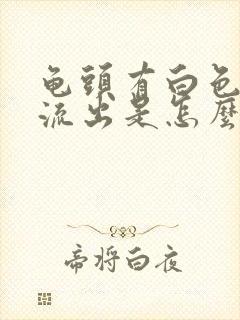 龟頭有白色
流出是怎麼
帝将白夜